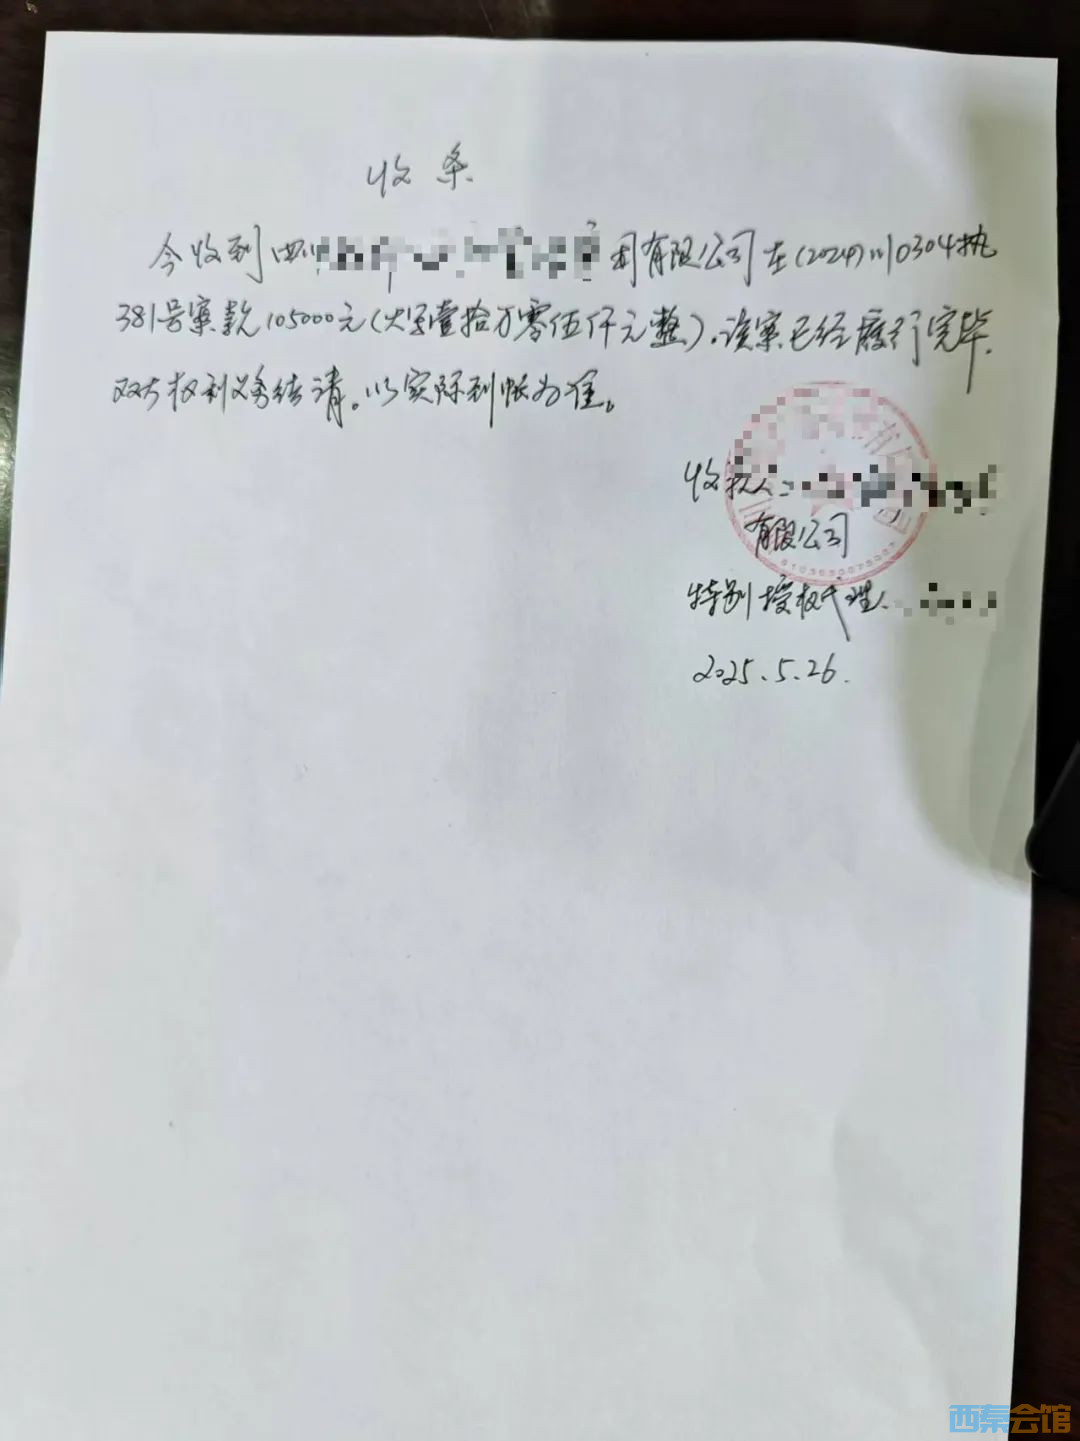 收条
今收到四川 有限公司在(2024)川0304执
381号案款105000元(大写壹拾万零伍仟元整)。该案已经履行完毕，
双方权利义务结清。以实际到帐为准。
收款人：
有限公司
特别授权代理：
2025.5.26.
西秦会馆